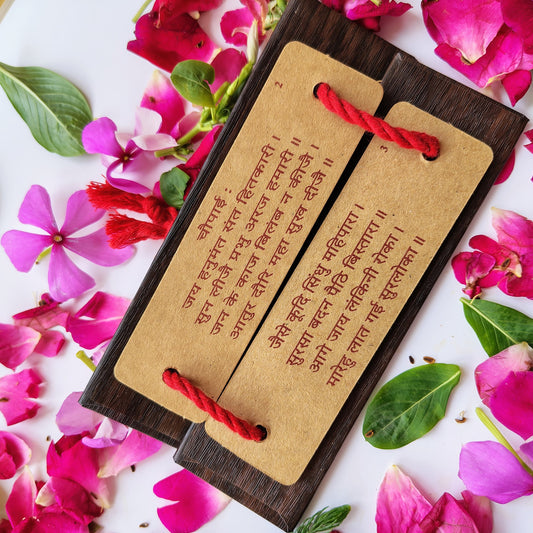 2
चौपाई :
जय हनुमंत संत हितकारी ।
सुन लीजै प्रभु अरज हमारी ॥
जन के काज बिलंब न कीजै ।
आतुर दौरि महा सुख दीजै ॥
3
जैसे कूदि सिंधु महिपारा ।
सुरसा बदन पैठि बिस्तारा ॥
आगे जाय लंकिनी रोका ।
मारेहु लात गई सुरलोका ॥